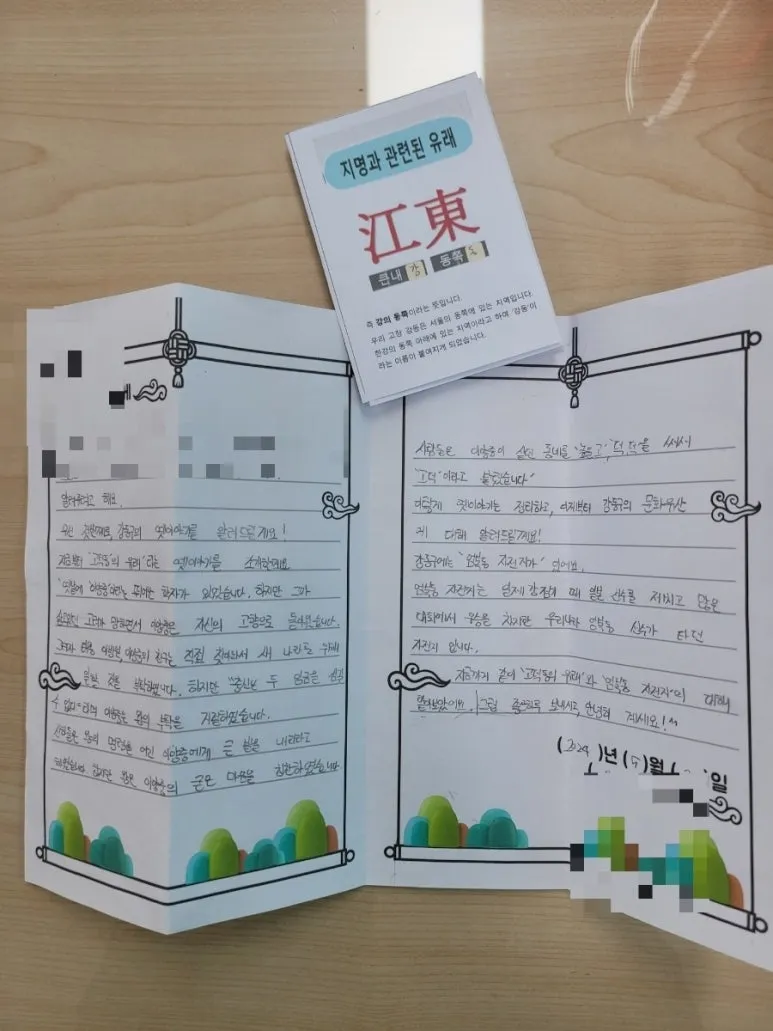 지명과 관련된 유래
江東
큰내 강 동쪽 동
즉 강의 동쪽이라는 뜻입니다.
우리 고장 강동은 서울의 동쪽에 있는 지역입니다.
한강의 동쪽 아래에 있는 지역이라고 하여 '강동'이
라는 이름이 붙여지게 되었습니다.
알려드리려고 해요.
우선 첫번째로, 강동구의 옛이야기를 알려드릴게요!
지금부터 '고덕동의 유래'라는 옛이야기를 소개할게요.
"옛날에 '이양중'이라는 뛰어난 학자가 있었습니다. 하지만 그가
고려가 망하면서 이양중은 자신의 고향으로 돌아갔습니다.
직접 찾아와서 새 나라를 위해
일할 것을 부탁했습니다. 하지만 "충신은 두 임금을 섬길
수 없다"라며 이양중은 왕의 부탁을 거절하였습니다.
신하들은 왕의 명령을 어긴 이양중에게 큰 벌을 내리라고
하였습니다. 하지만 왕은 이양중의 곧은 마음을 칭찬하였습니다
사람들은 이양중이 살던 동네를 '높을 고', '덕 덕'을 써서
'고덕'이라고 불렀습니다"
이렇게 옛이야기는 정리하고, 이제부터 강동구의 문화유산
에 대해 알려드릴게요!
강동구에는 '엄복동 자전거'가 있어요.
엄복동 자전거는 일제 강점기 때 일본 선수를 제치고 많은
대회에서 우승을 차지한 우리나라 엄복동 선수가 타던
자전거 입니다.
지금까지 같이 '고덕동의 유래'와 '엄복동 자전거'에 대해
알아보았어요. 그럼 좋은하루 보내시고, 안녕히 계세요! ^^
(2024)년 (5)월 일